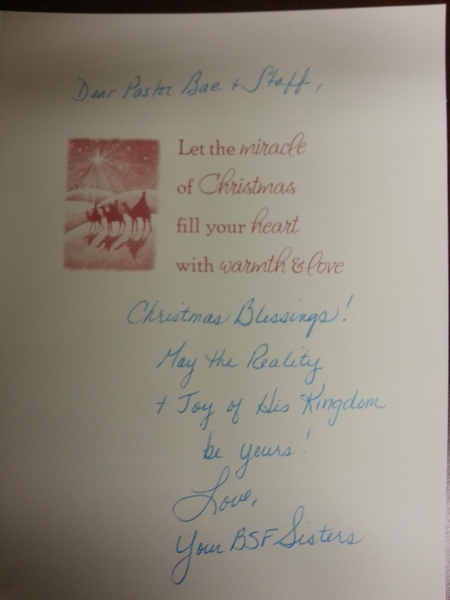 Dear Pastor Bae + Staff,
Let the miracle
of Christmas
fill your heart
with warmth & love
Christmas Blessings!
May the Reality
+ Joy of His Kingdom
be yours!
Love,
Your BSF Sisters